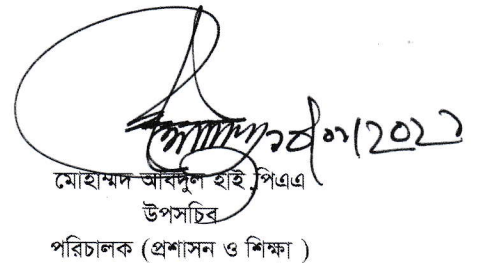 মোহাম্মদ আবদুল হাই পিএএ
উপসচিব
পরিচালক (প্রশাসন ও শিক্ষা )